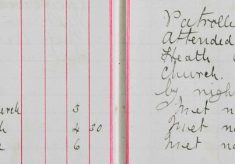 Patrolle
Attended
Heath
Church.
by nigh
urch 3 met n
h 4 30 met no
6 met no